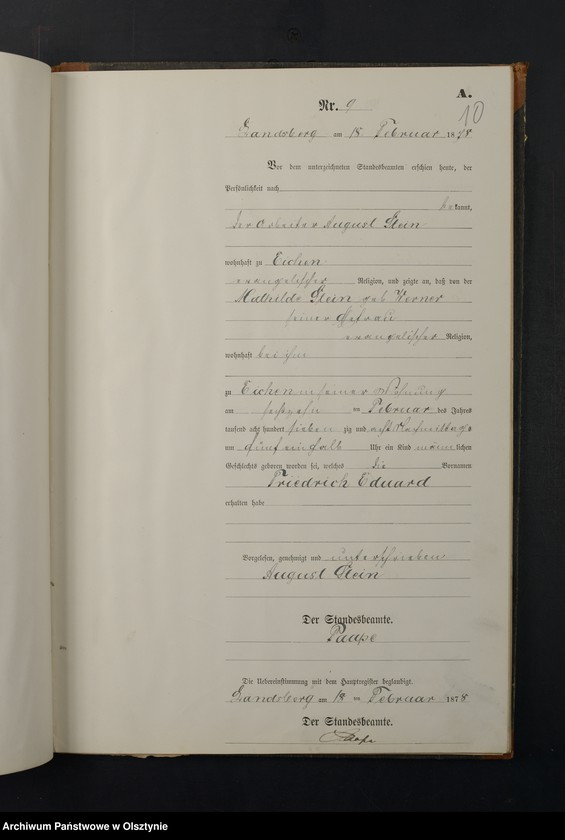 A.
10
Nr. 9
Landsberg am 18 Februar 1878
Vor dem unterzeichneten Standesbeamten erschien heute, der
Persönlichkeit nach
bekannt,
der Arbeiter August Stein
wohnhaft zu Eichen
evangelischer Religion, und zeigte an, daß von der
Mathilde Stein geb Werner
seiner Ehefrau
evangelischer Religion,
wohnhaft bei ihm
zu Eichen in seiner Wohnung
am sechszehn ten Februar des Jahres
tausend acht hundert sieben zig und acht Nachmittags
um fünf ein halb Uhr ein Kind männlichen
Geschlechts geboren worden sei, welches die Vornamen
Friedrich Eduard
erhalten habe
Vorgelesen, genehmigt und unterschrieben
August Stein
Der Standesbeamte.
Paape
Die Uebereinstimmung mit dem Hauptregister beglaubigt.
Landsberg am 18 ten Februar 1878
Der Standesbeamte.
Paape
Archiwum Państwowe w Olsztynie